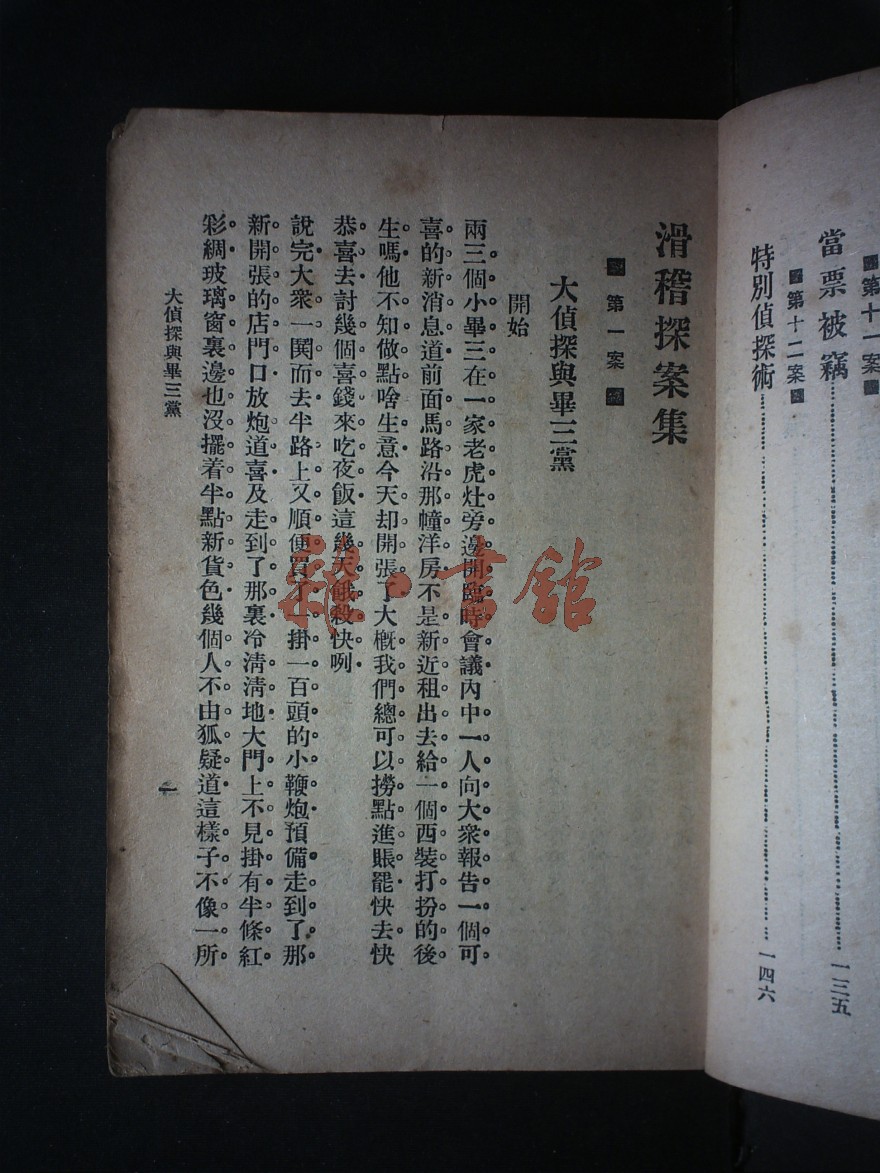 第十一案
當票被竊 一三五
第十二案
特別偵探術 一四六
滑稽探案集
第一案
大偵探與畢三黨
開始
兩三個小畢三在一家老虎灶旁邊開臨時會議內中一人向大衆報告一個可
喜的新消息道前面馬路沿那幢洋房不是新近租出去給一個西裝打扮的後
生嗎他不知做點啥生意今天却開張了大槪我們總可以撈點進賬罷快去快
恭喜去討幾個喜錢來吃夜飯這幾天餓殺快咧
說完大衆一閧而去半路上又順便買了一掛一百頭的小鞭炮預備走到了那
新開張的店門口放炮道喜及走到了那裏冷清清地大門上不見掛有半條紅
彩綢玻璃窗裏邊也沒擺着半點新貨色幾個人不由狐疑道這樣子不像一所
大偵探與畢三黨
一
雜·書館